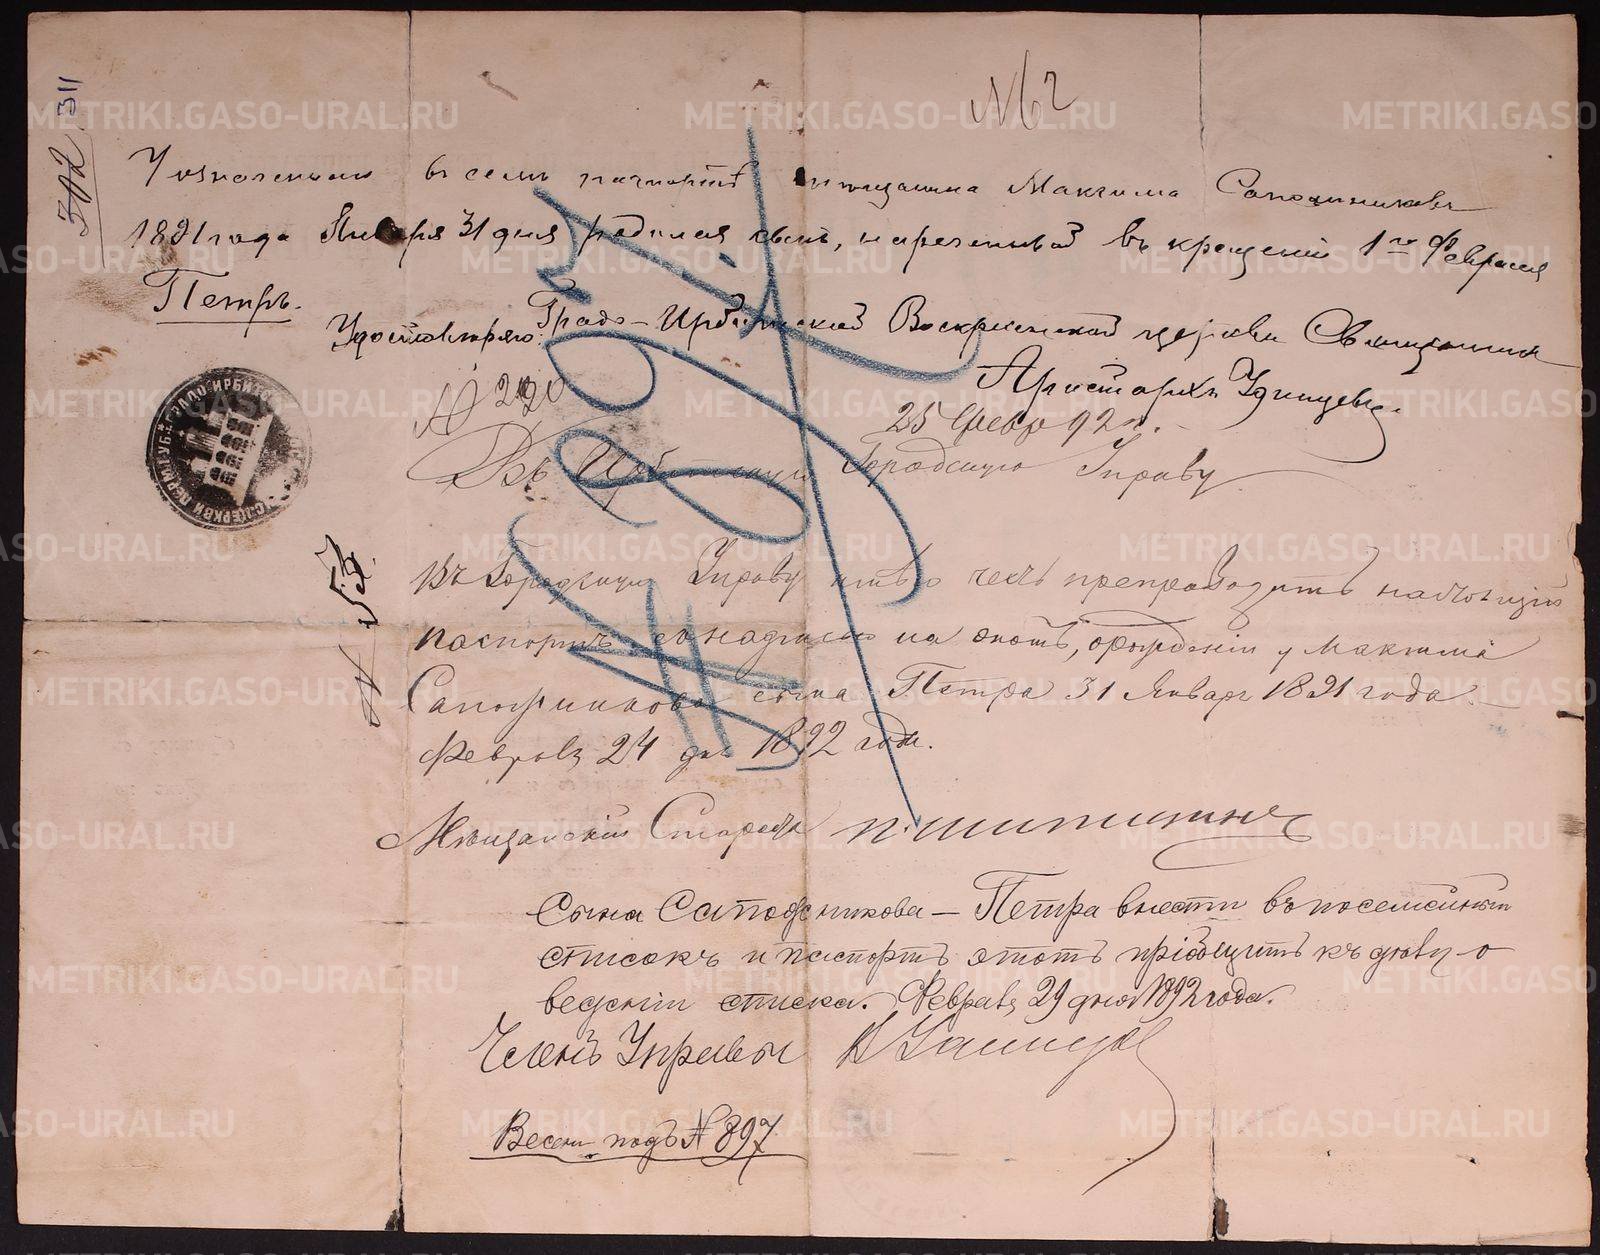 № 2
311
302
У означеннаго въ семъ паспортѣ мѣщанина Максима Сапожникова
1891 года Января 31 дня родился сынъ, нареченный въ крещеніи 1го Февраля
Петръ.
Удостовѣряю: Градо-Ирбитской Воскресенской церкви Священникъ
Аристархъ Удинцевъ.
№ 220
25 Февр 92 г.
Въ Ирбитскую Городскую Управу
№ 53.
Въ Городскую Управу имѣю честь препроводить настоящій
паспортъ съ надписью на онотъ, о рожденіи у Максима
Сапожникова сына Петра 31 Января 1891 года.
Февраля 24 дня 1892 года.
Мѣщанскій Староста П. Шипицинъ
Сына Сапожникова — Петра внести въ посемейный
списокъ и паспортъ этотъ пріобщить къ дѣлу о
веденіи списка. Февраля 29 дня 1892 года.
Членъ Управы
Внесенъ подъ № 897
METRIKI.GASO-URAL.RU